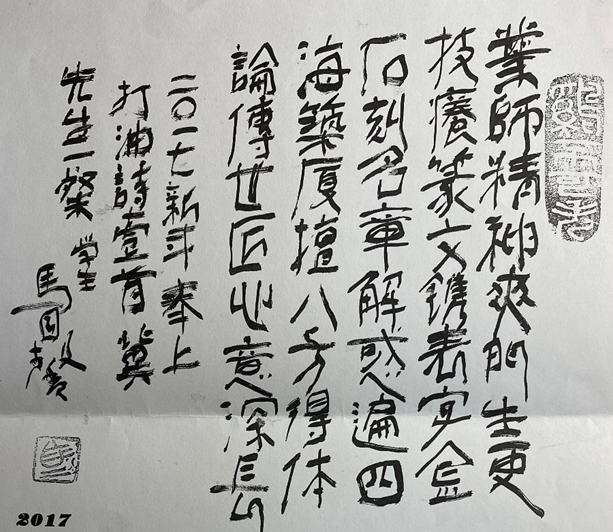 業師精神爽門生更
技癢篆文鐫表字金
石刻名章解惑遍四
海築厦擅八方得体
論傳世匠心意深長
二〇一七新年奉上
打油詩壹首冀
先生一粲
学生
馬国馨
2017